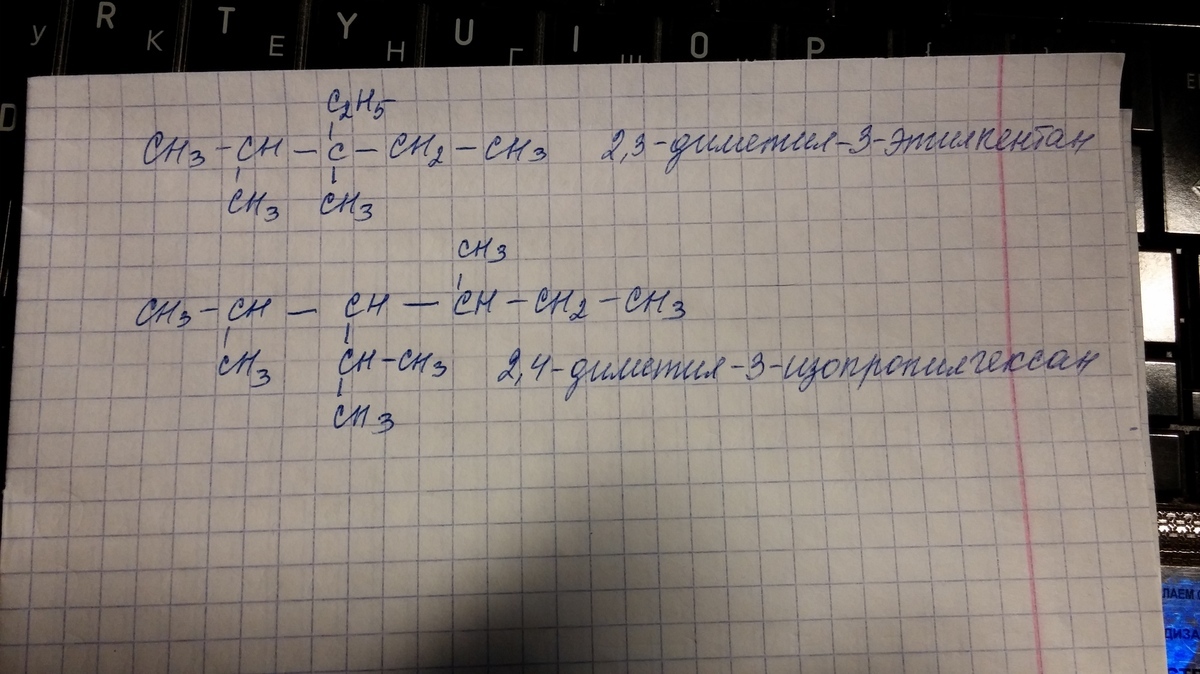 R T Y U I O P
У К Е Н Г Ш
D
C2H5
CH3 - CH - C - CH2 - CH3 2,3-диметил-3-этилпентан
CH3 CH3
CH3
CH3 - CH - CH - CH - CH2 - CH3
CH3 CH-CH3 2,4-диметил-3-изопропилгексан
CH3
ЛАЕМ
ДИЗА